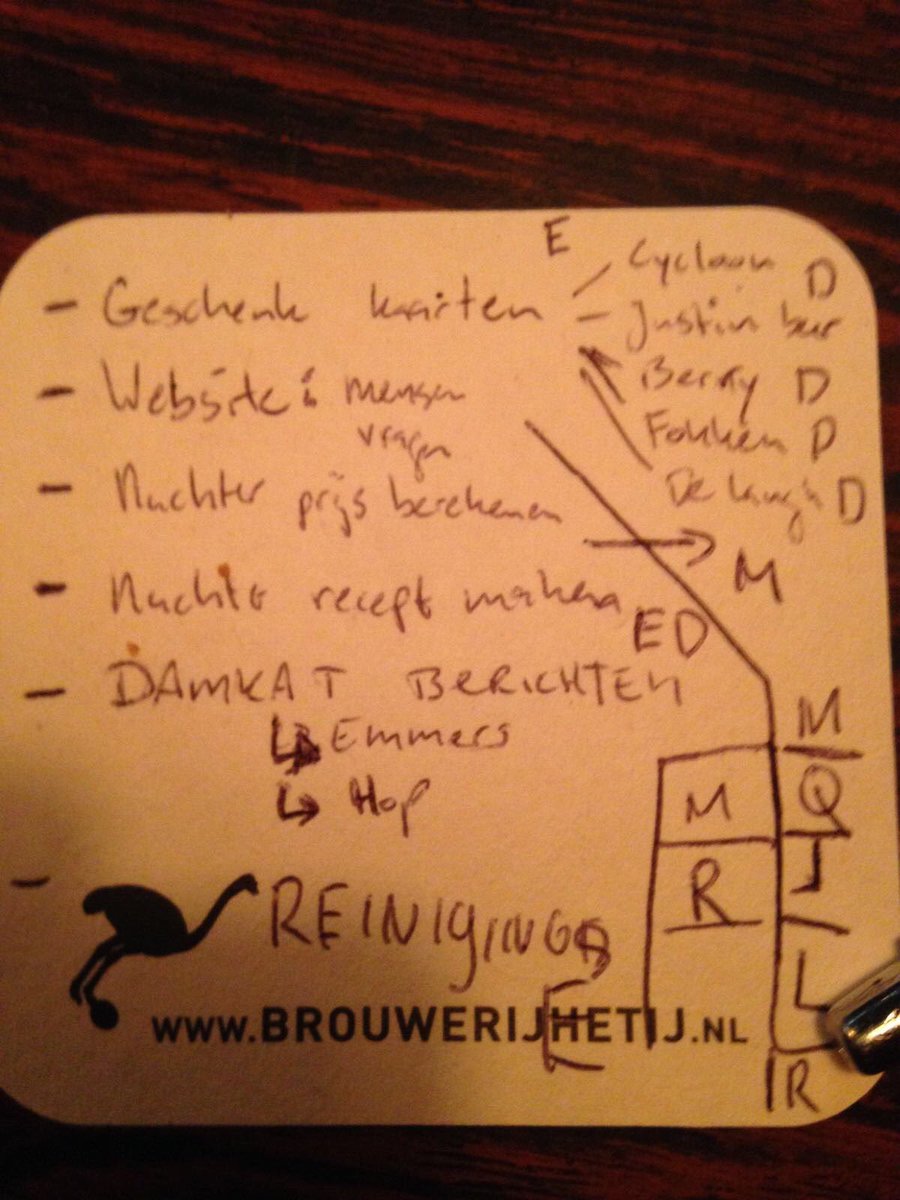 E
- Geschenk kaarten
Cycloon D
- Justin bur
Berry D
Fokken D
De D
- Website: mensen
vragen
- Nuchter prijs berekenen
M
- Nuchter recept maken
ED
- DAMKAT BERICHTEN
↳ Emmers
↳ Hop
M
Q
M
R
L
R
- REINIGING
E
WWW.BROUWERIJHETIJ.NL